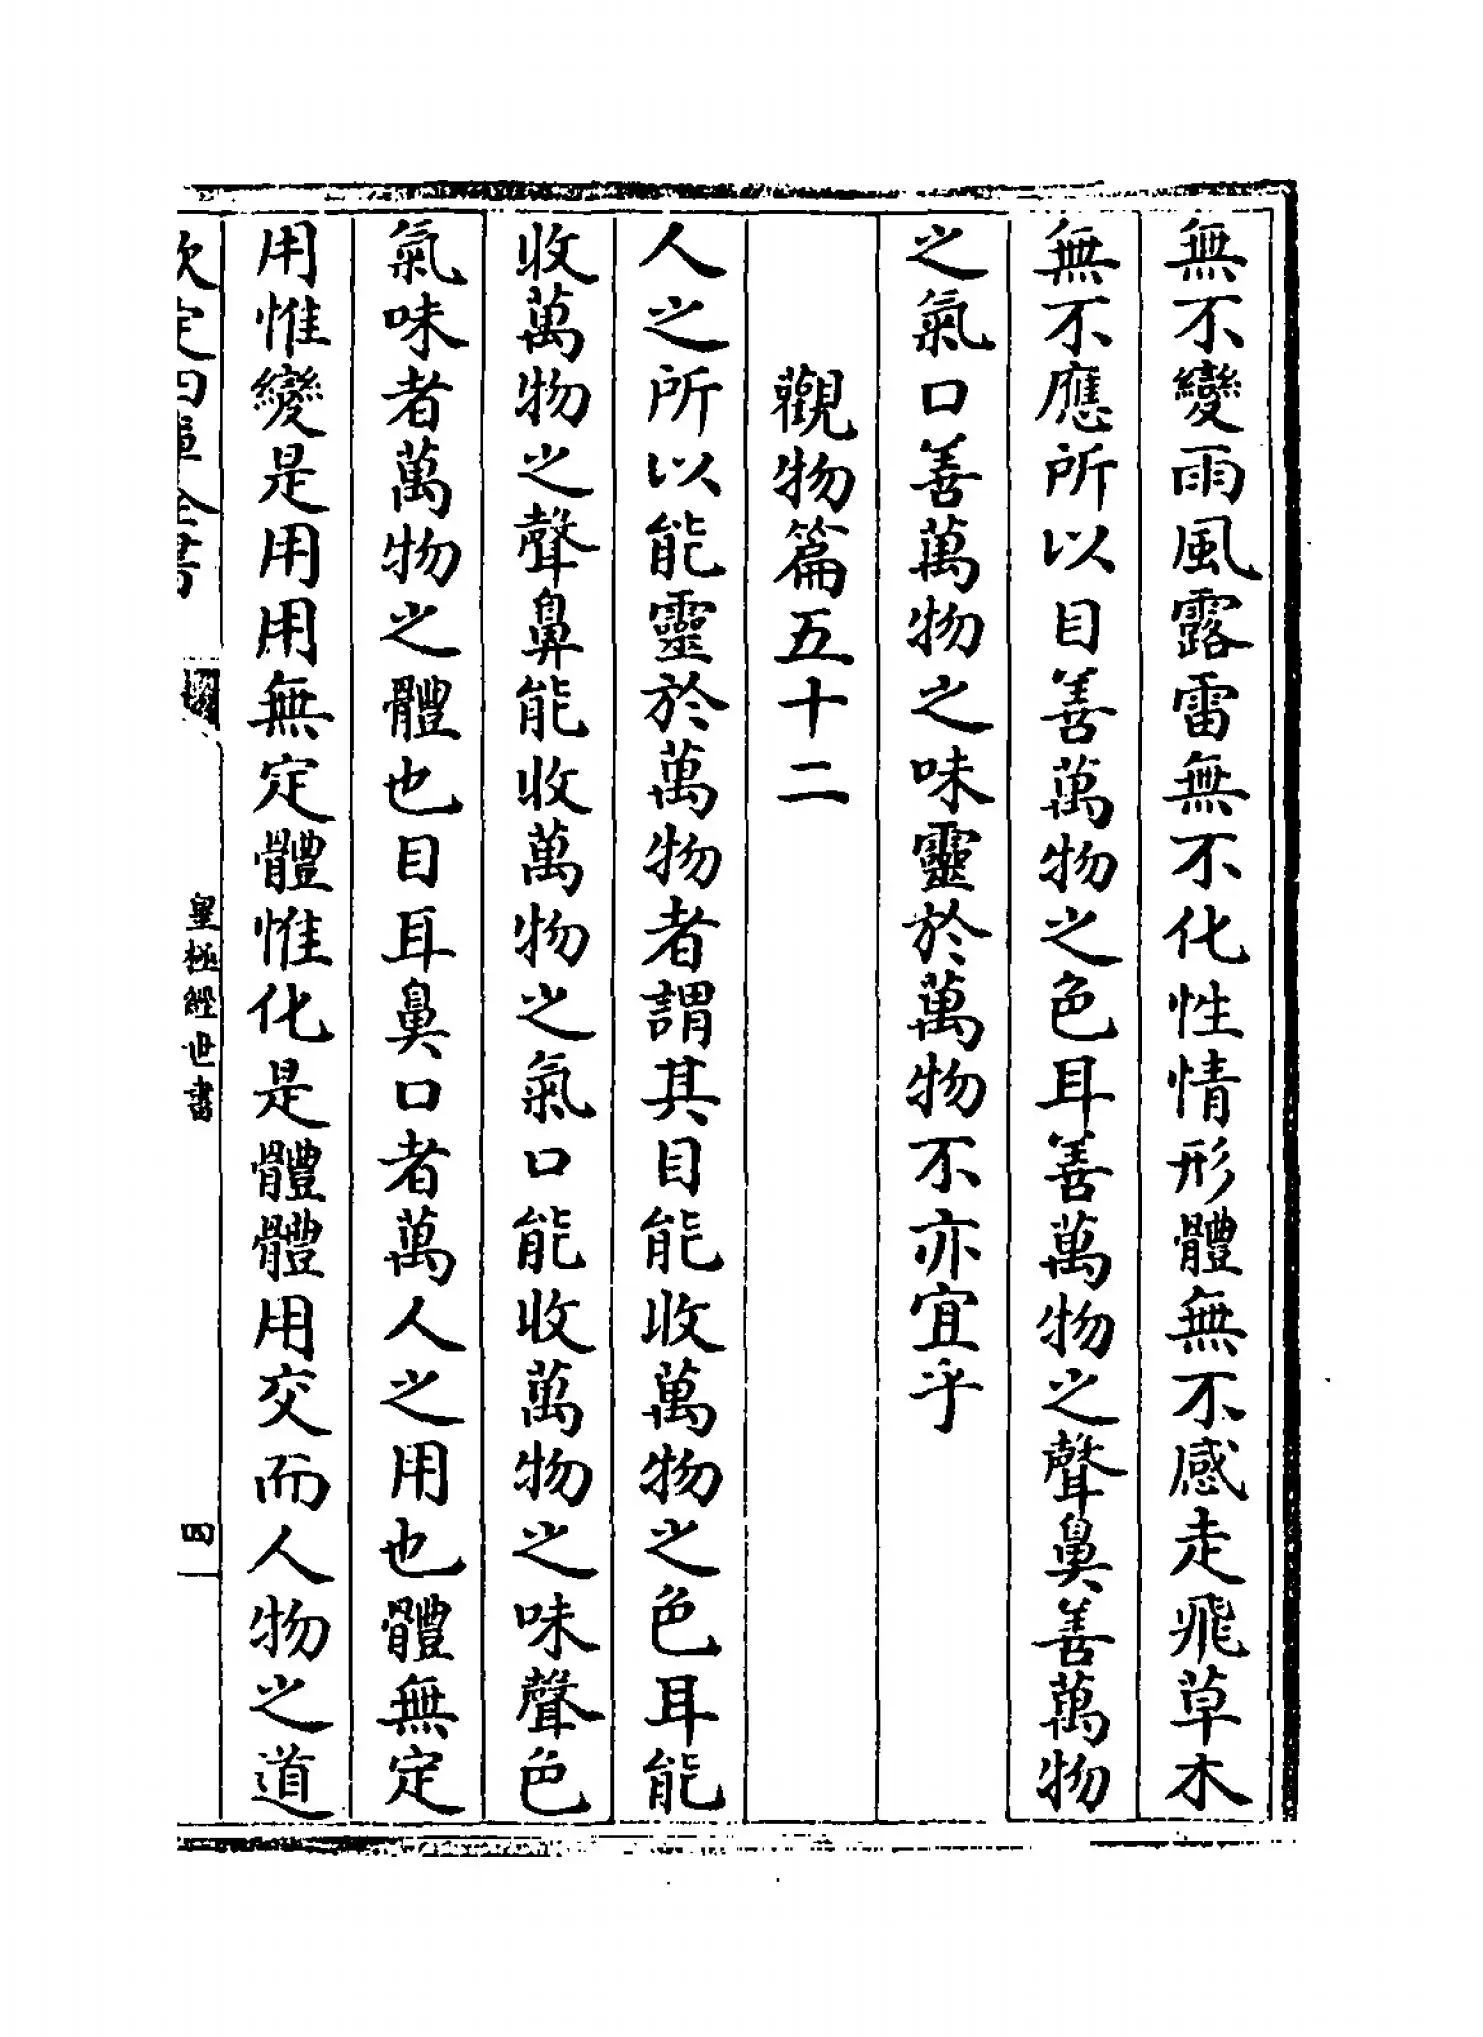 無不變雨風露雷無不化性情形體無不感走飛草木
無不應所以目善萬物之色耳善萬物之聲鼻善萬物
之氣口善萬物之味靈於萬物不亦宜乎
觀物篇五十二
人之所以能靈於萬物者謂其目能收萬物之色耳能
收萬物之聲鼻能收萬物之氣口能收萬物之味聲色
氣味者萬物之體也目耳鼻口者萬人之用也體無定
用惟變是用用無定體惟化是體體用交而人物之道
欽定四庫全書
皇極經世書
四